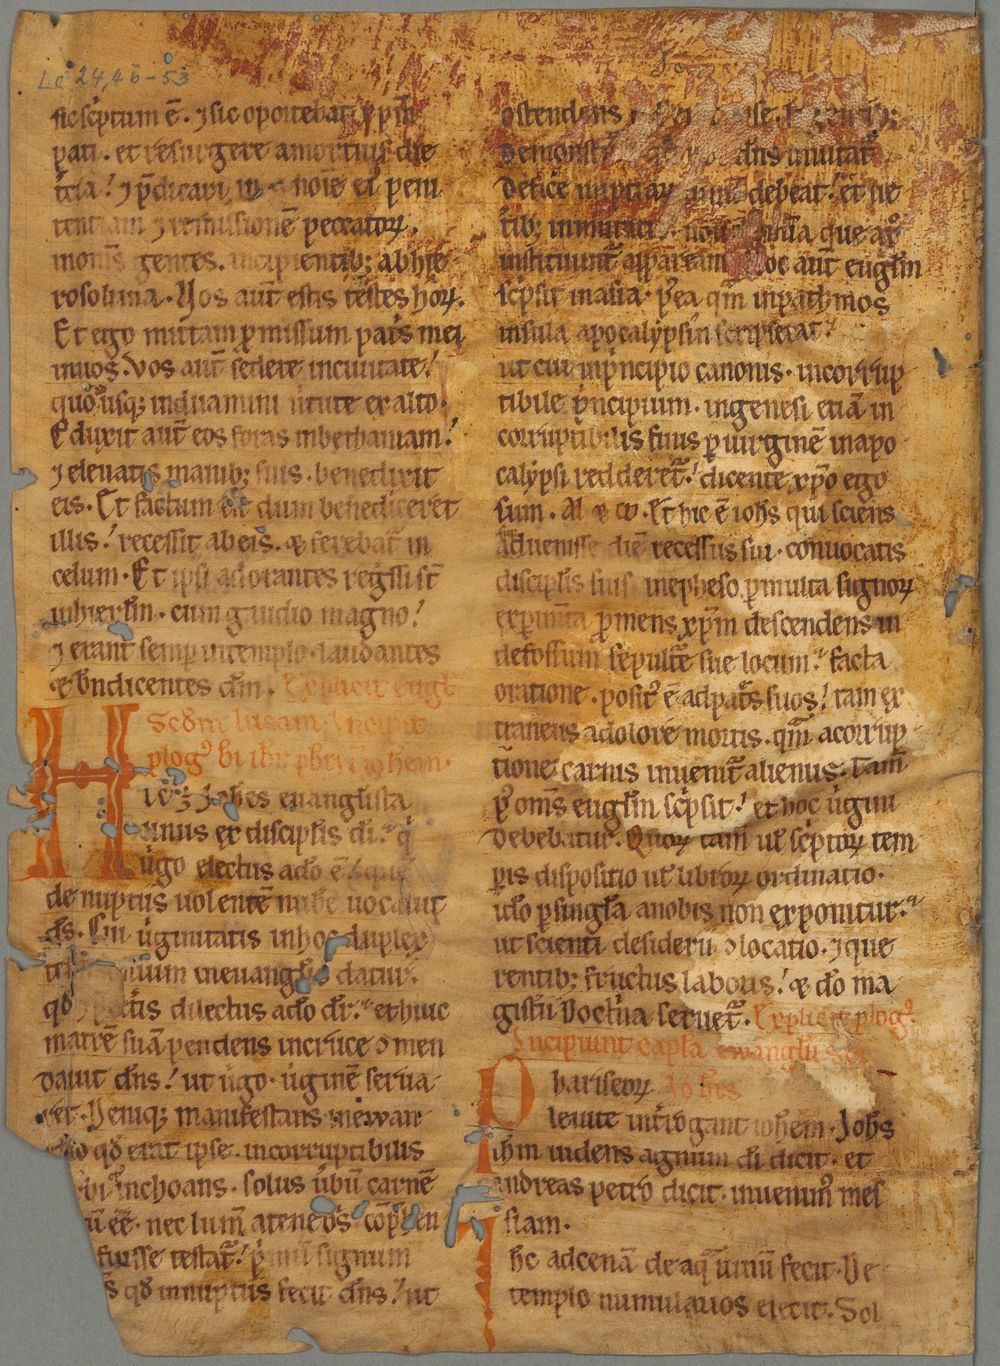 Lc 24,46-53
sic sc̄ptum ē. ⁊ sic oportebat xp̄m
pati. et resurgere a mortuis die
t̄cia! ⁊ p̄dicari in noīe ei᷒ peni
tentiam ⁊ remissionē peccatoꝝ.
in om̄s gentes. incipientib; ab hie
rosolima. Vos aut̄ estis testes hoꝝ.
Et ego mittam ꝓmissum pat̄s mei
in uos. Vos aut̄ sedete in ciuitate!
quo usq; induamini uirtute ex alto.
Eduxit aut̄ eos foras in bethaniam!
⁊ eleuatis manib; suis. benedixit
eis. Et factum est dum benediceret
illis! recessit ab eis. & ferebat̄ in
celum. Et ipsi adorantes reg̃ssi st̄
in hierlm̄. cum gaudio magno!
⁊ erant semꝑ in templo. laudantes
& bn̄dicentes dm̄. Explicit eugl̄
Scd̄m lucam. Incipit
plog᷒ bi ihr̄ pbr̄i ī ioh̄em.
Hic ē Ioh̄es euanglista
unus ex discipl̄is di. q̄
uirgo electus a dō ē! que
de nuptiis uolentē nub̄e uocauit
ds̄. Cui uirginitatis in hoc duplex
euangl̄io datur.
q̄d dilectus a dō dr̄. et huic
matrē suā pendens in cruce ↄmen
dauit dn̄s! ut uirgo. uirginē serua
ret. Deniq; manifestans in ewan
q̄d erat ipse. incorruptibilis
inchoans. solus uerbū carnē
ēē. nec lum̄ a teneb̄s cōp̄hen
fuisse testat̄! p̄mū signum
q̄d in nuptiis fecit dn̄s! ut
ostendens
demonst̄ dn̄s inuitat᷒
deficere nuptiaꝝ uinū debeat! et ue
t̄ib; inmutatis. noua omnia que a xp̄o
instituunt̄ appareant. Hoc aut̄ eugl̄m
sc̄psit in asia. p̄ea qm̄ in pathmos
insula apocalypsin scripserat!
ut cui in p̄ncipio canonis. incorrup
tibile p̄ncipium. in genesi etiā in
corruptibilis finis ꝑ uirginē in apo
calypsi redderet̄! dicente xp̄o ego
sum. Al & ω. Et hic ē ioh̄s qui sciens
aduenisse diē recessus sui. conuocatis
discipl̄is suis in epheso. ꝑ multa signoꝝ
exꝑimta ꝓmens xp̄m descendens in
defossum sepult̄e sue locum! facta
oratione. posit᷒ ē ad pat̄s suos! tam ex
traneus a dolore mortis. qm̄ a corrup
tione carnis inuenit̄ alienus. Tam̄
p᷒ om̄s eugl̄m sc̄psit! et hoc uirgini
debebatur. Quoꝝ tam̄ uel sc̄ptoꝝ tem
ꝑis dispositio ul̄ libroꝝ ordinatio.
ido ꝑ singl̄a a nobis non exponitur.
ut sciendi desiderii ↄlocatio. ⁊ que
rentib; fructus laboris! & dō ma
gist̄ii doct̄ina seruet̄. Explicit plog᷒.
Incipiunt capl̄a ewanglii scd̄m
Phariseoꝝ Ioh̄is
leuite int̄rogant ioh̄em. Ioh̄s
ih̄m uidens agnum di dicit. et
andreas petro dicit. inuenim᷒ mes
siam.
Ih̄c ad cenā de aq̄ uinū fecit. De
templo numularios eiecit. Sol